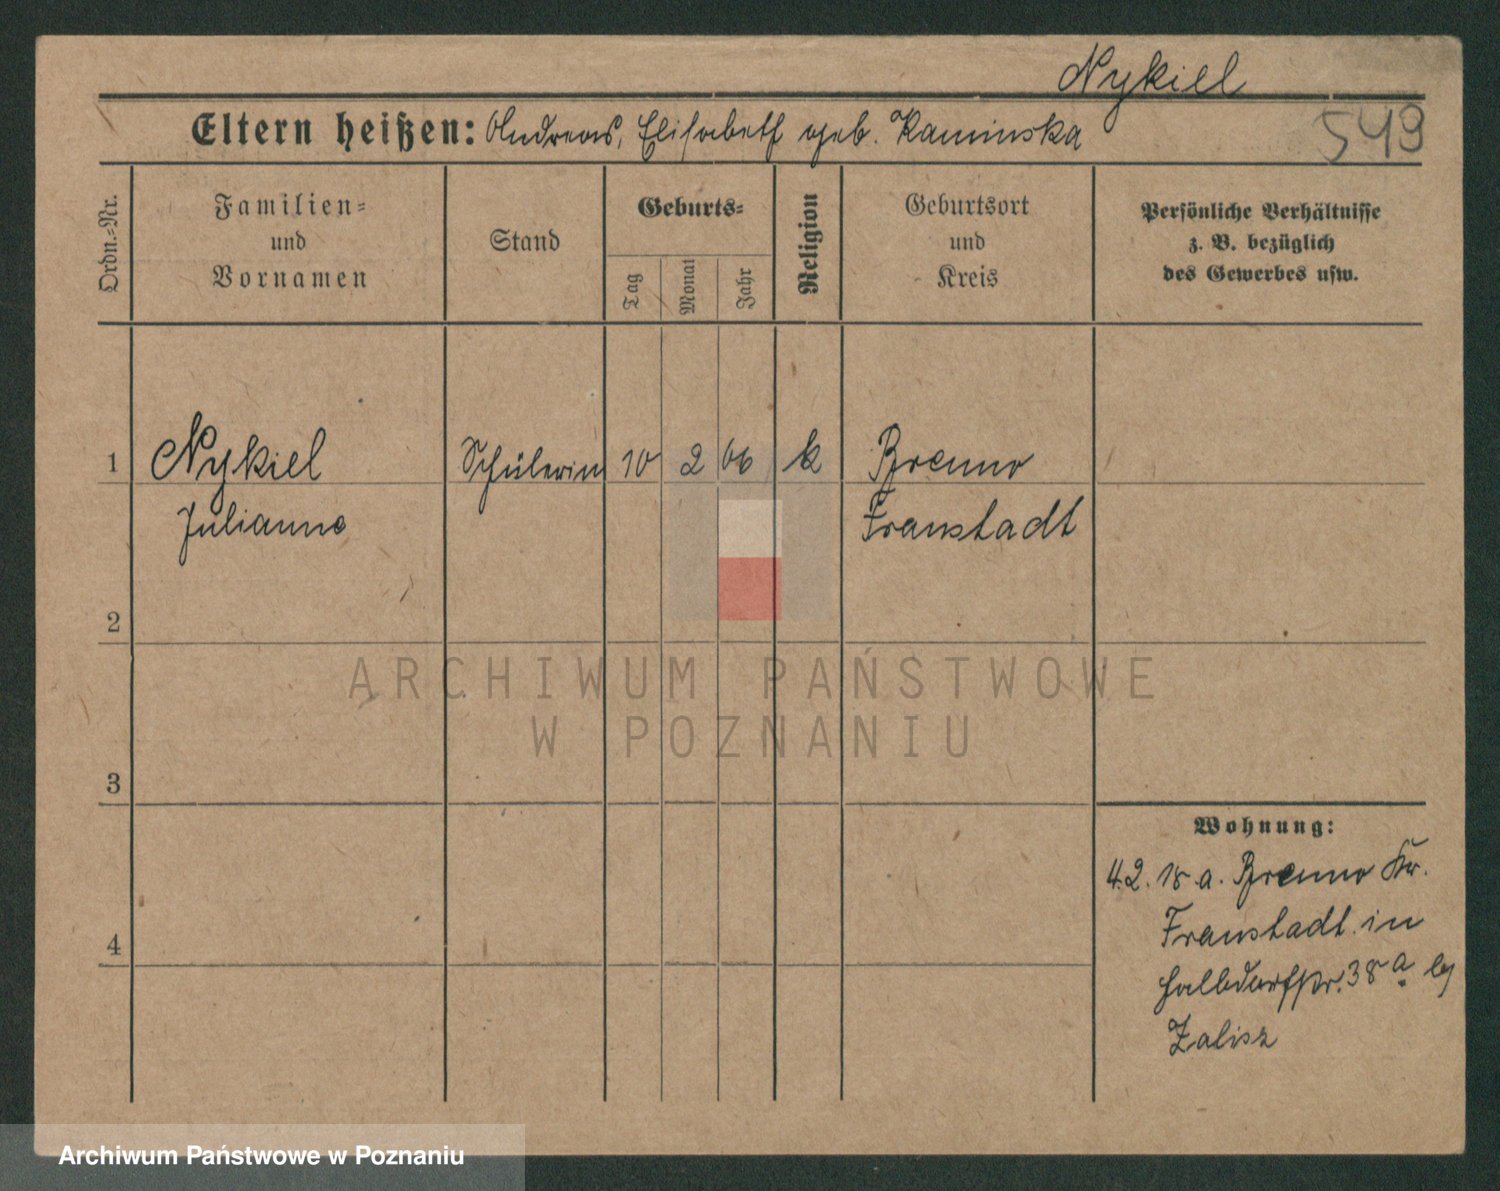 Nykiel
549
Eltern heißen: Andreas, Elisabeth geb. Kaminska
Ordn.-Nr.
Familien-
und
Vornamen
Stand
Geburts-
Tag
Monat
Jahr
Religion
Geburtsort
und
Kreis
Persönliche Verhältnisse
z. B. bezüglich
des Gewerbes usw.
1 Nykiel Schülerin 10 2 06 k Brenno
Julianna Fraustadt
2
3
4
Wohnung:
4.2.18 a. Brenno Kr.
Fraustadt in
Halbdorfstr. 38a by
Zalisz
ARCHIWUM PAŃSTWOWE
W POZNANIU
Archiwum Państwowe w Poznaniu